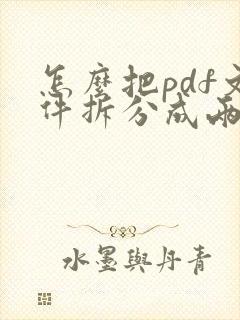 怎麽把pdf文
件拆分成兩
水墨與丹青